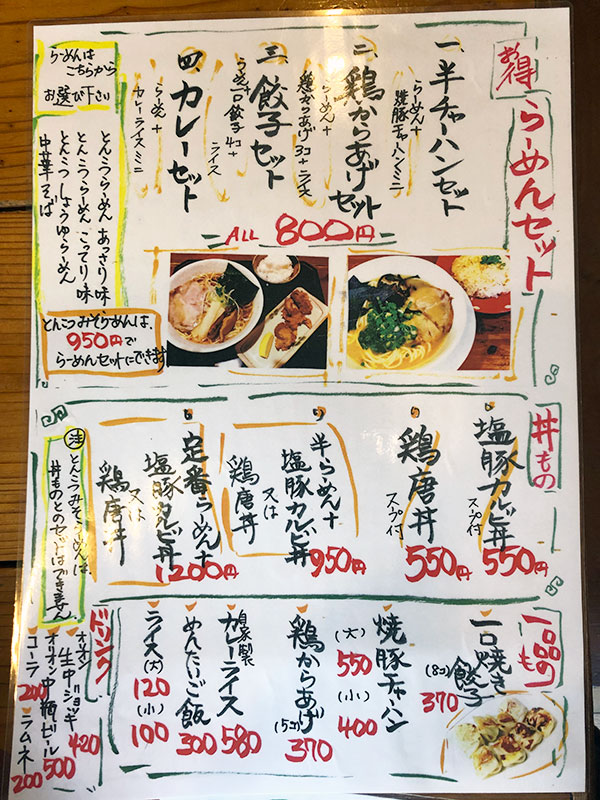 お得
らーめんセット
一、半チャーハンセット
らーめん+
焼豚チャーハンミニ
二、鶏からあげセット
らーめん+
鶏からあげ3コ+ライス
三、餃子セット
らーめん+
一口餃子4コ+
ライス
四、カレーセット
らーめん+
カレーライスミニ
ALL 800円
らーめんは
こちらから
お選び下さい
とんこつらーめん あっさり味
とんこつらーめん こってり味
とんこつしょうゆらーめん
中華そば
とんこつみそらーめんは、
950円で
らーめんセットにできます
丼もの
塩豚カルビ丼
スープ付
550円
鶏唐丼
スープ付
550円
半らーめん+
塩豚カルビ丼
又は
鶏唐丼
950円
定番らーめん+
塩豚カルビ丼
又は
鶏唐丼
1200円
注
とんこつみそらーめんは、
丼ものとのセットはできません
一品もの
一口焼き
餃子
(8コ)
370
焼豚チャーハン
(大)
550
(小)
400
鶏からあげ
(5コ)
370
自家製
カレーライス
580
めんたいご飯
300
ライス(大)
120
(小)
100
ドリンク
オリオン
生中ジョッキ
420
オリオン中瓶ビール
500
コーラ
200
ラムネ
200